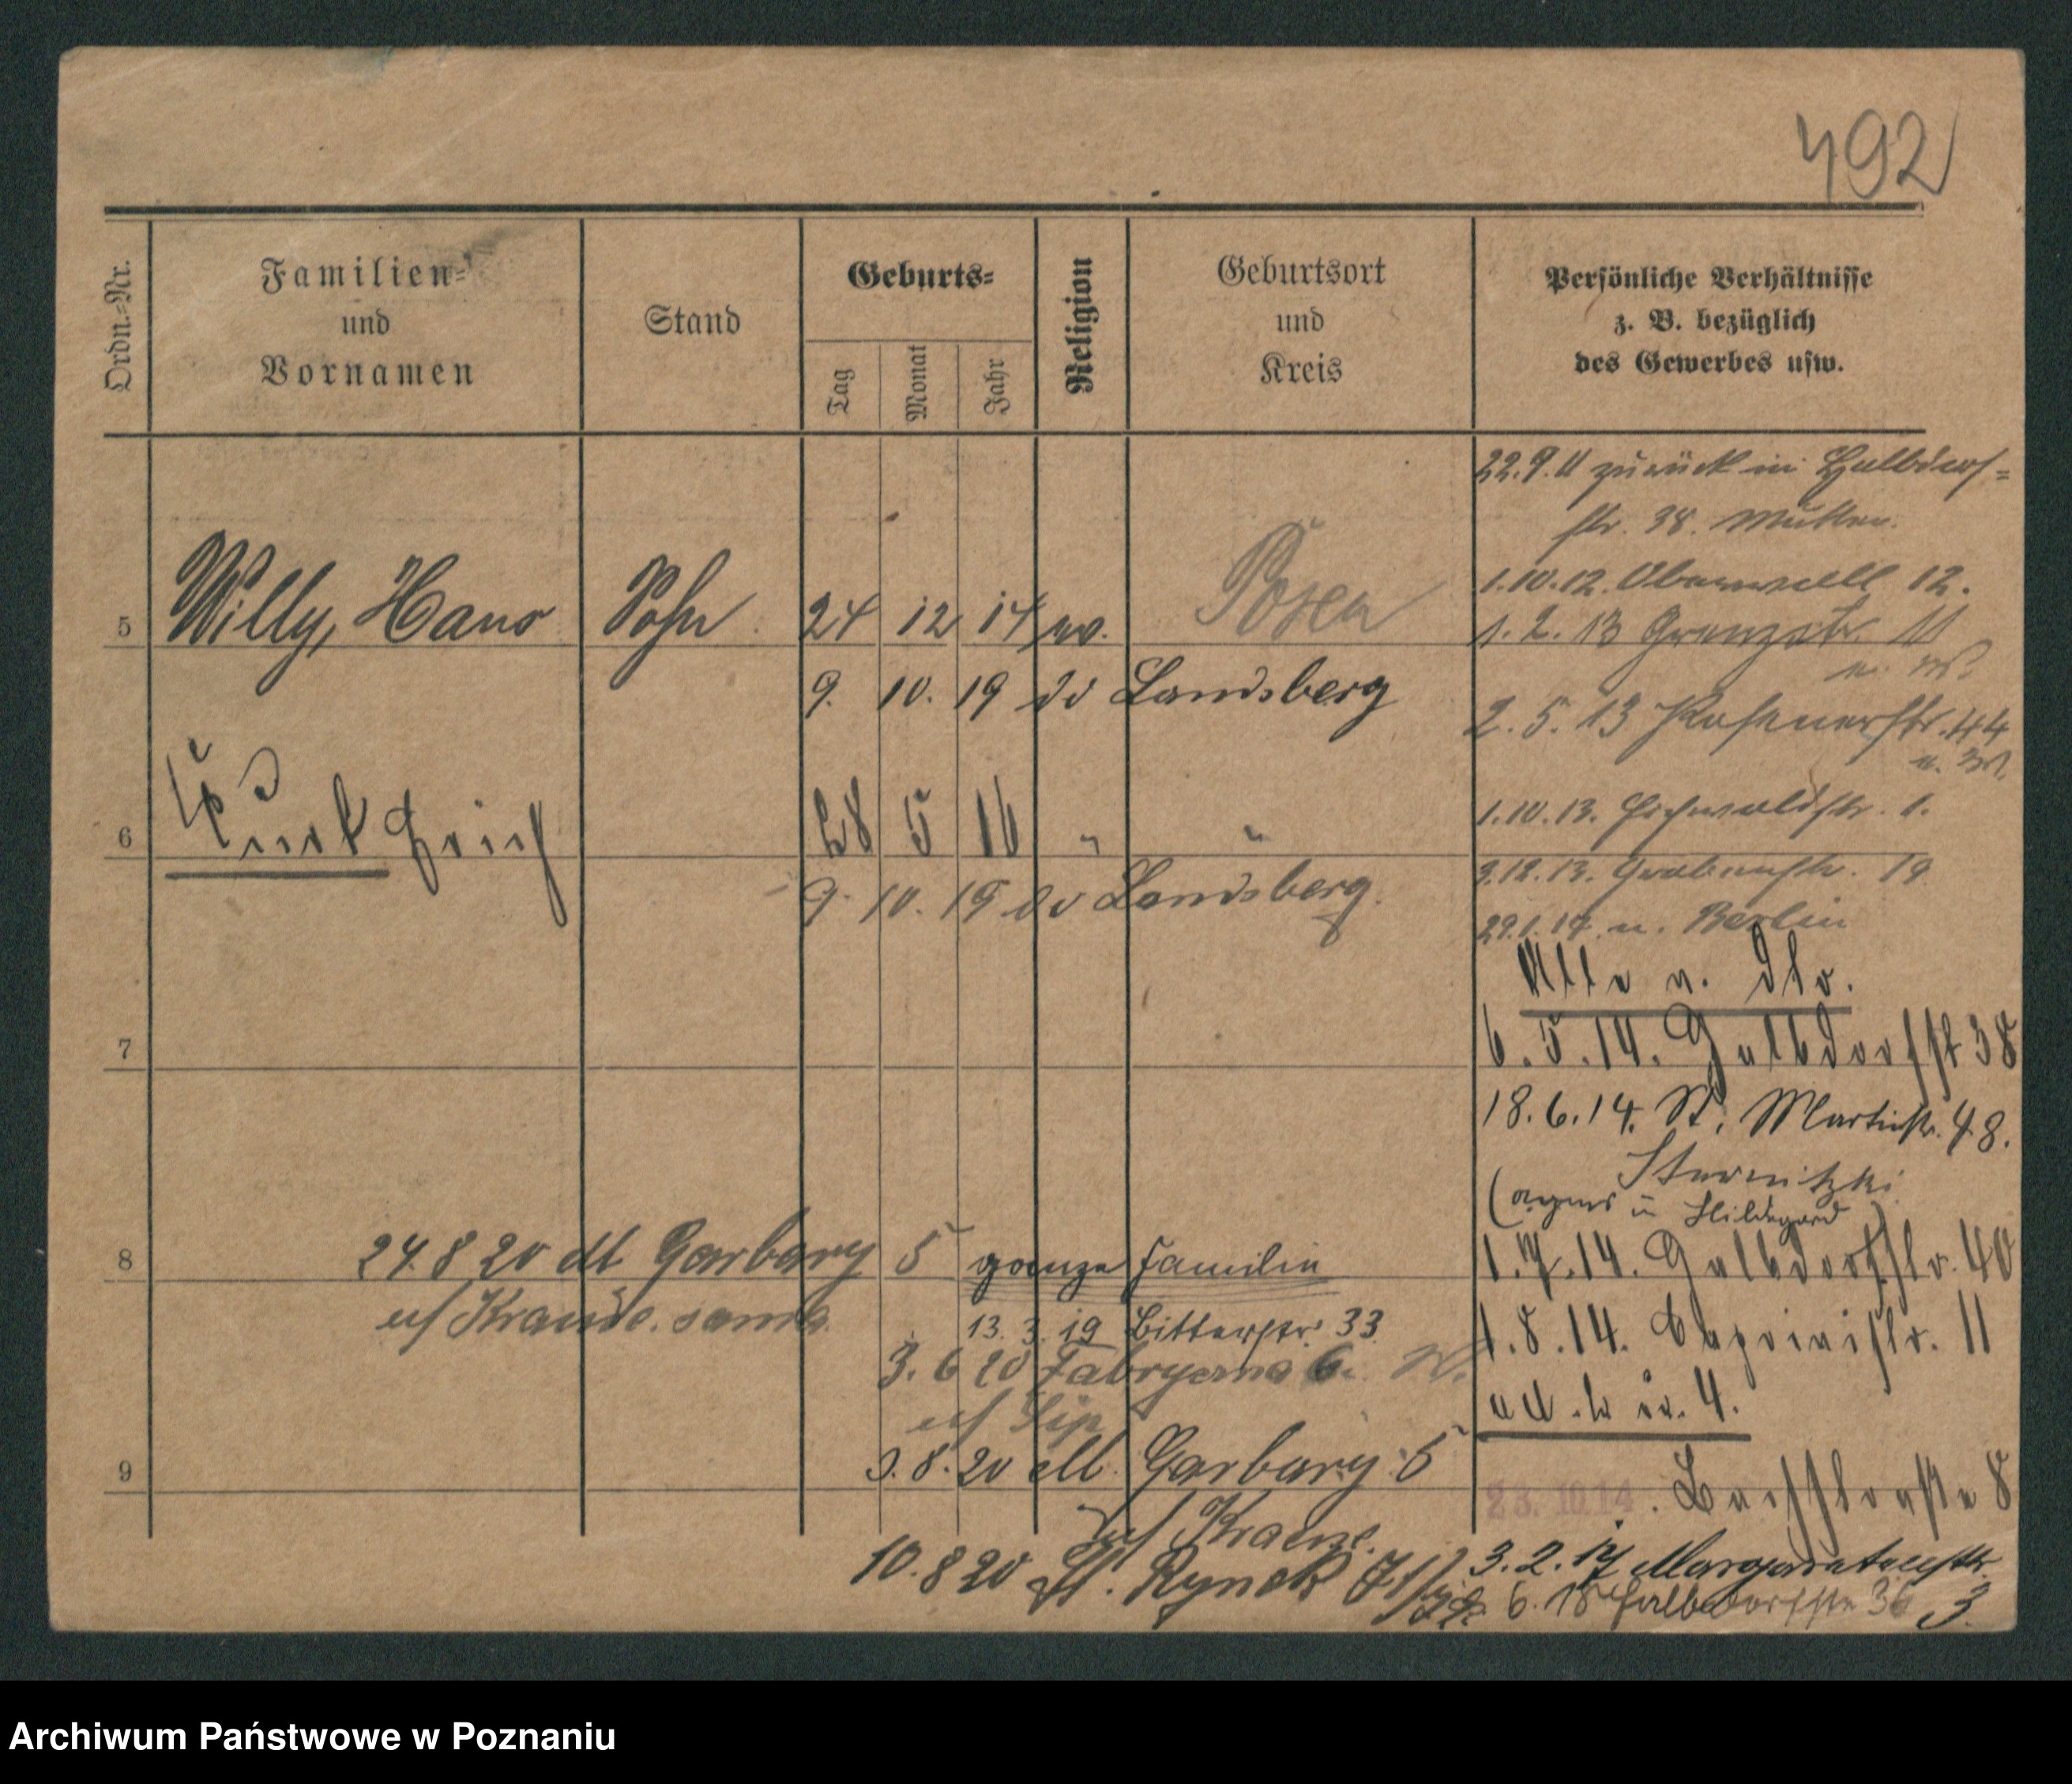 492
Ordn.-Nr.
Familien-
und
Vornamen
Stand
Geburts-
Tag
Monat
Jahr
Religion
Geburtsort
und
Kreis
Persönliche Verhältnisse
z. B. bezüglich
des Gewerbes usw.
22.9.11 zurück in Halbdorf-
str. 38. Mutter.
1.10.12. 12.
5 Willy, Hans Sohn 24 12 14 ev. Posen
1.2.13 Grenzstr. 11
9. 10. 19 do Landsberg
2.5.13 Posenerstr. 44
6 Kurt Erich 28 5 16 " "
1.10.13. Eichwaldstr. 1.
9. 10. 19 do Landsberg
9.12.13. Grabenstr. 19
29.1.14 n. Berlin
7
6.5.14. Halbdorfstr 38
18.6.14. St. Martinstr. 48.
(Agnes u Hildegard)
8 24 8 20 dl Garbary 5 ganze Familie
1.7.14. Halbdorfstr. 40
u/ Krause.
13. 3. 19 Bitterstr. 33
1.8.14. Caprivistr. 11
3. 6 20 Fabryczna 6.
9
9. 8. 20 dl. Garbary 5
23. 10. 14. Bachstraße 8
u/ Krause.
10. 8 20 St. Rynek
3.2.17 Margaretenstr. 3.
6. 18 Halbdorfstr 36
Archiwum Państwowe w Poznaniu